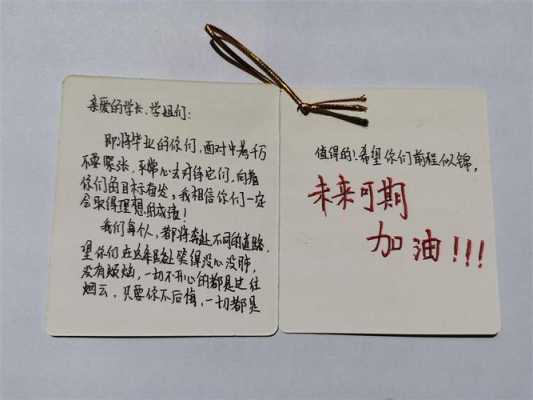 亲爱的学长、学姐们:
即将毕业的你们,面对中考千万
不要紧张,平常心去对待它们,向着
你们的目标奋发,我相信你们一定
会取得理想的成绩!
我们每个人,都将奔赴不同的道路,
望你们在这条路处笑得没心没肺,
没有烦恼,一切不开心的都是过往
烟云,只要你不后悔,一切都是
值得的!希望你们前程似锦,
未来可期
加油!!!